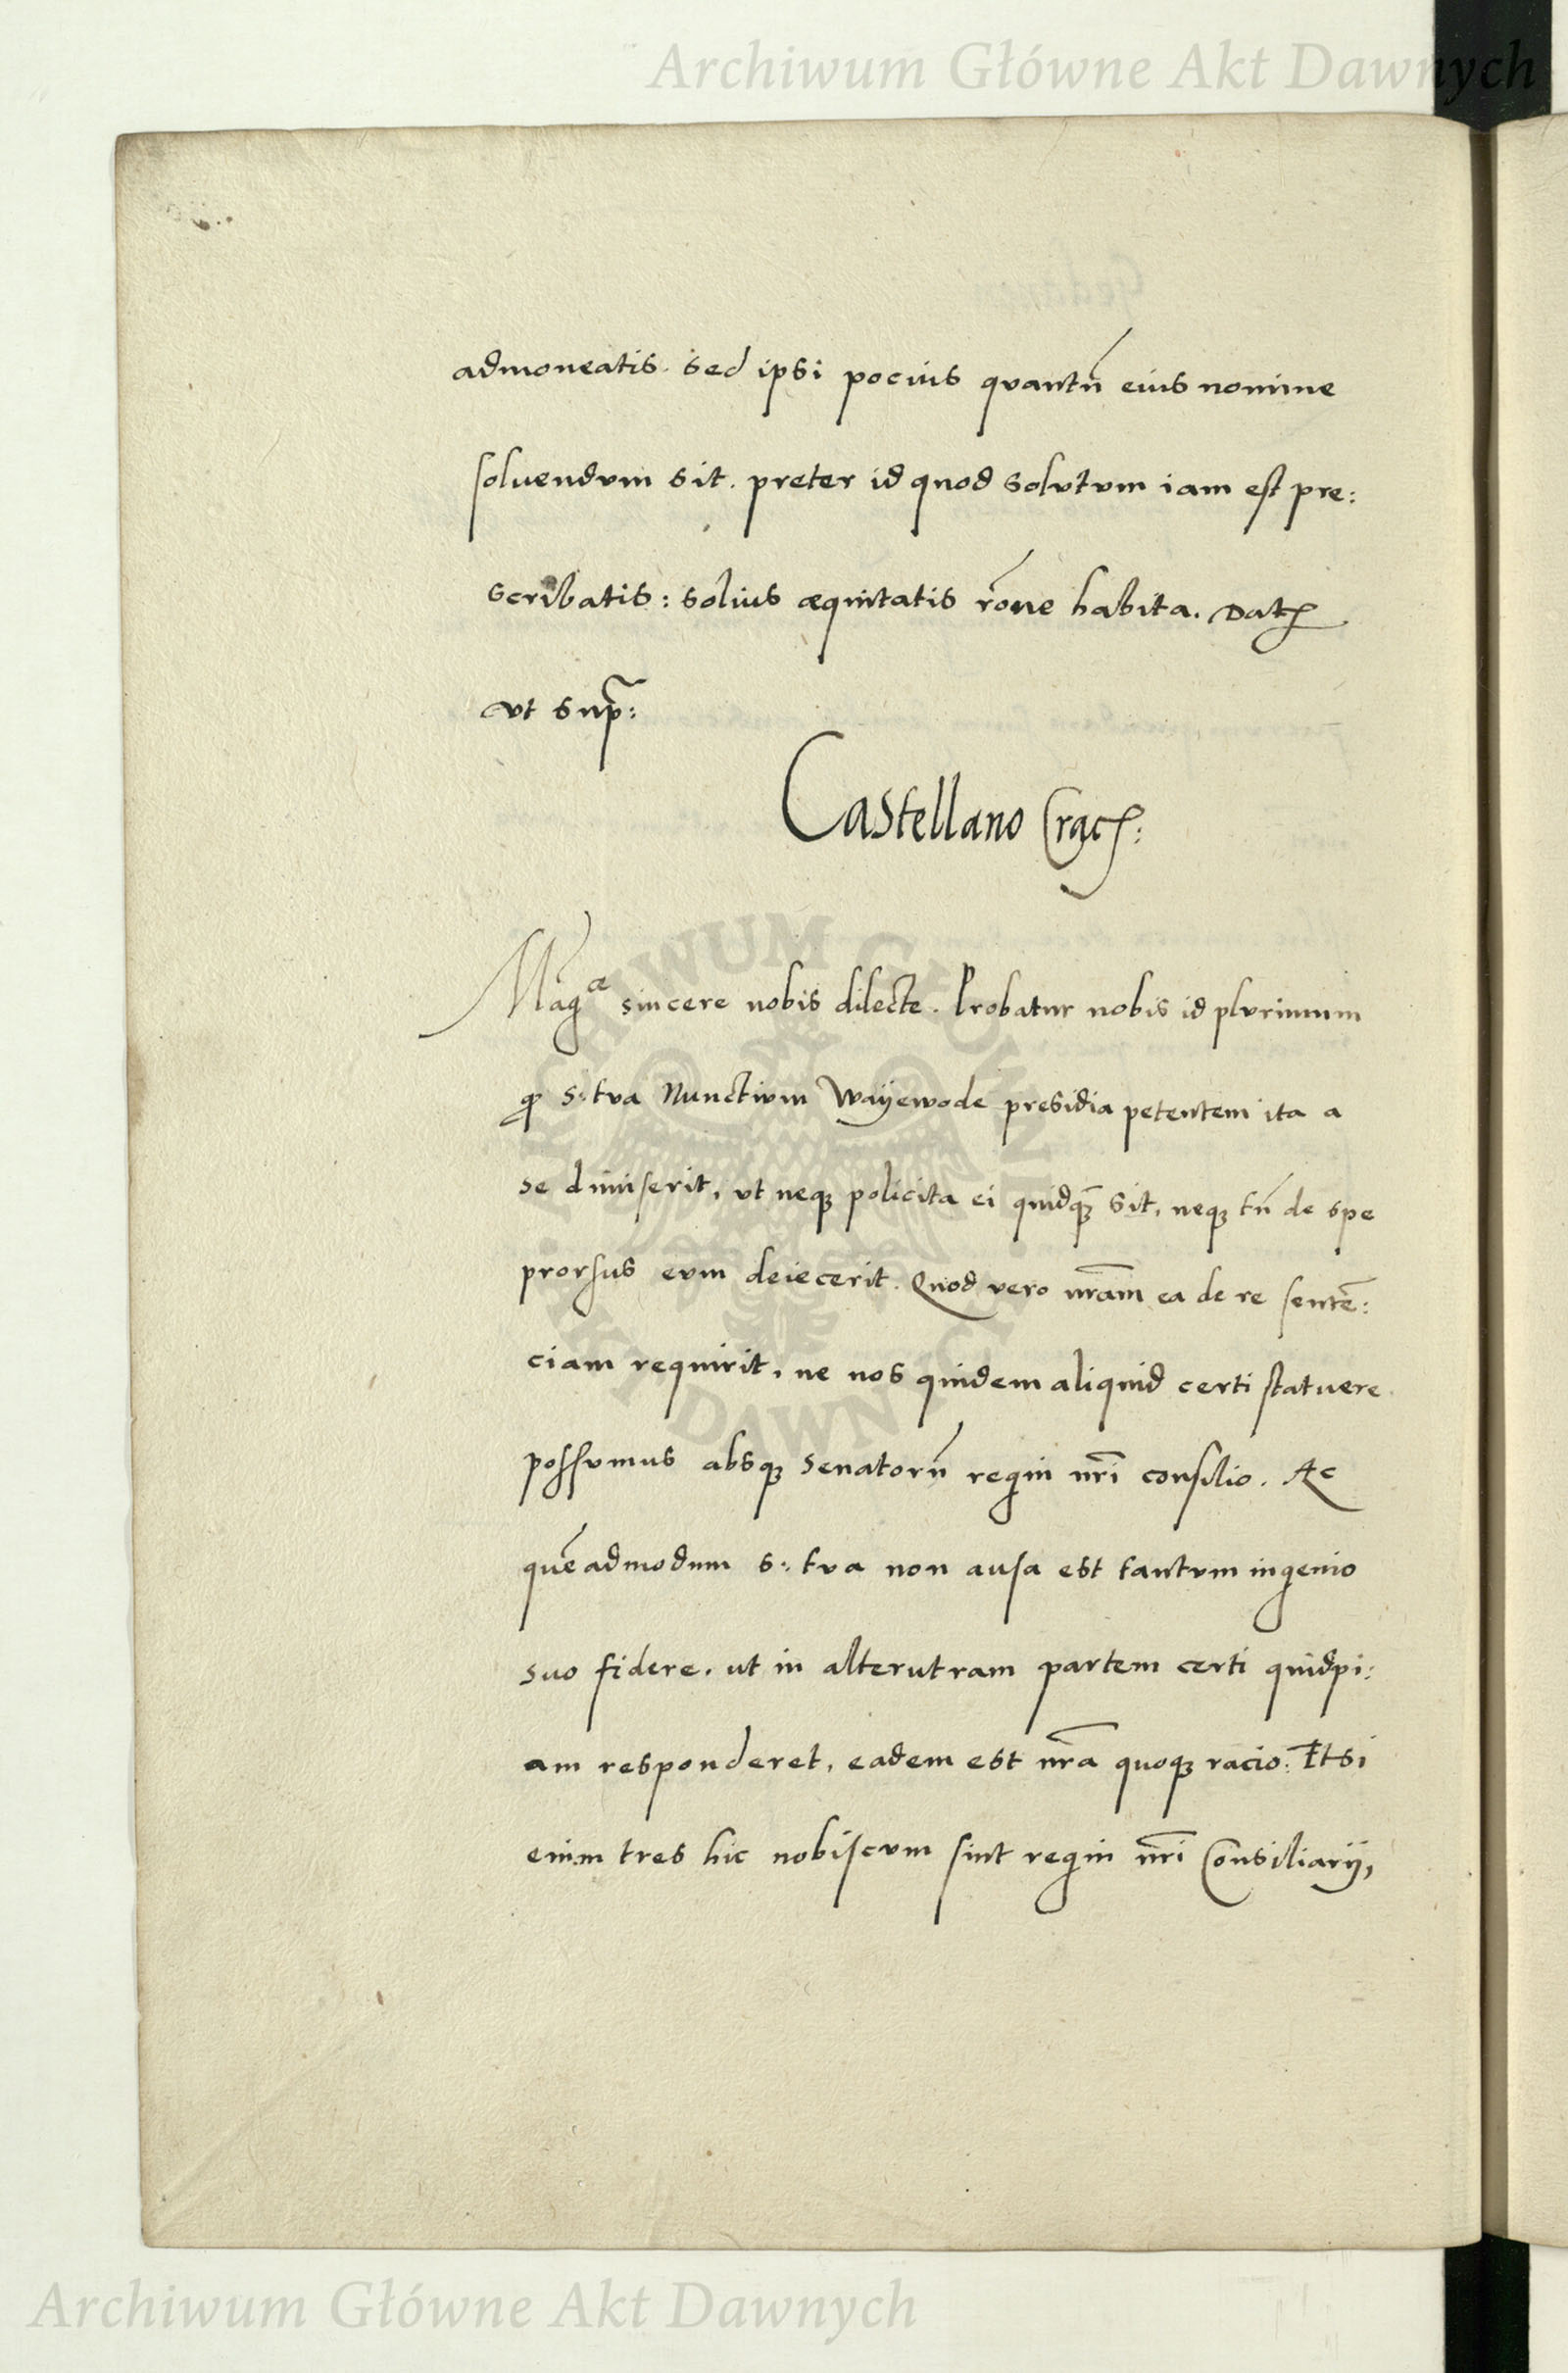 Archiwum Główne Akt Dawnych
admoneatis. sed ipsi pocius quantū eius nomine
soluendum sit. preter id quod solutum iam est pre:
scribatis: solius æquitatis rōne habita. Datꝭ
ut supᷓ:
Castellano Cracꝭ:
Magᶜᵉ sincere nobis dilecte. Probatur nobis id plurimum
ꝙ s: tua Nunctium Wayewode presidia petentem ita a
se dimiserit, ut neqꝫ policita ei quidqꝫ̄ sit, neqꝫ tn̄ de spe
prorsus eum deiecerit. Quod vero nrām ea de re sentē:
ciam requirit, ne nos quidem aliquid certi statuere
possumus absqꝫ senatorū regni nrī consilio. Ac
quēadmodum s: tua non ausa est tantum ingenio
suo fidere. ut in alterutram partem certi quidpi:
am responderet, eadem est nrā quoqꝫ racio: Etsi
enim tres hic nobiscum sint regni nrī Consiliarij,
ARCHIWUM GŁÓWNE AKT DAWNYCH
Archiwum Główne Akt Dawnych